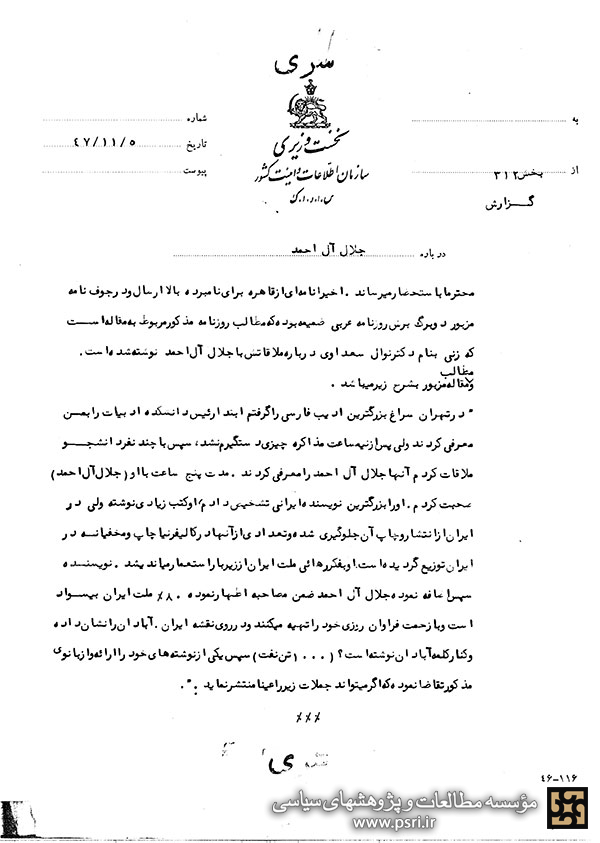 سری
نخست وزیری
سازمان اطلاعات و امنیت کشور
س.ا.و.ا.ک
به
از بخش ۳۱۲
گزارش
شماره
تاریخ ۴۷/۱۱/۵
پیوست
درباره جلال آل احمد
محترما باستحضار میرساند . اخیرا نامه ای از قاهره برای نامبرده بالا ارسال و در جوف نامه
مزبور دو برگ برش روزنامه عربی ضمیمه بوده که مطالب روزنامه مذکور مربوط به مقاله است
که زنی بنام دکتر نوال سعداوی درباره ملاقاتش با جلال آل احمد نوشته شده است .
مطالب
مقاله مزبور بشرح زیر میباشد .
" در تهران سراغ بزرگترین ادیب فارسی را گرفتم ابتدا رئیس دانشکده ادبیات را بمن
معرفی کردند ولی پس از نیم ساعت مذاکره چیزی دستگیرم نشد، سپس با چند نفر دانشجو
ملاقات کردم آنها جلال آل احمد را معرفی کردند . مدت پنج ساعت با او (جلال آل احمد)
صحبت کردم . او را بزرگترین نویسنده ایرانی تشخیص دادم، او کتب زیادی نوشته ولی در
ایران از انتشار و چاپ آن جلوگیری شده و تعدادی از آنها در کالیفرنیا چاپ و مخفیانه در
ایران توزیع گردیده است. او بفکر رهائی ملت ایران از زیر بار استعمار میاندیشد . نویسنده
سپس اضافه نموده جلال آل احمد ضمن مصاحبه اظهار نموده . ۸٪ ملت ایران بیسواد
است و با زحمت فراوان روزی خود را تهیه میکنند و در روی نقشه ایران . آبادان را نشان داده
و کنار کلمه آبادان نوشته است؟ (۱۰۰۰ تن نفت) سپس یکی از نوشته های خود را ارائه و از بانوی
مذکور تقاضا نموده که اگر میتواند جملات زیر را عینا منتشر نماید : ".
×××
۴۶-۱۱۶
مؤسسه مطالعات و پژوهشهای سیاسی
www.psri.ir